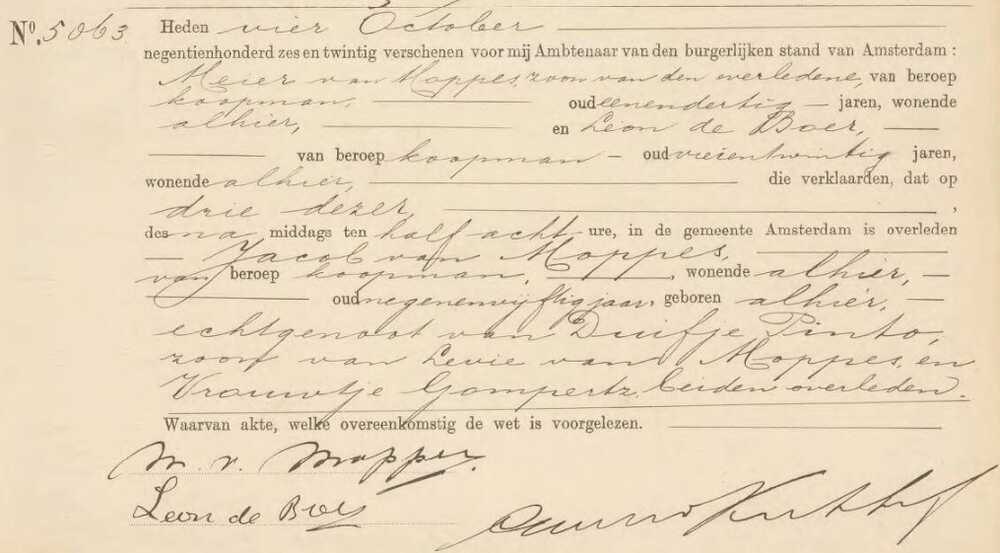 No. 5063 Heden vier October
negentienhonderd zes en twintig verschenen voor mij Ambtenaar van den burgerlijken stand van Amsterdam :
Meier van Moppes, zoon van den overledene, van beroep
koopman, oud eenendertig jaren, wonende
alhier, en Léon de Boer,
van beroep koopman oud vierentwintig jaren,
wonende alhier, die verklaarden, dat op
drie dezer,
des na middags ten half acht ure, in de gemeente Amsterdam is overleden
Jacob van Moppes,
van beroep koopman, wonende alhier,
oud negenenvijftig jaar, geboren alhier,
echtgenoot van Duifje Pinto,
zoon van Levie van Moppes, en
Vrouwtje Gompertz, beiden overleden.
Waarvan akte, welke overeenkomstig de wet is voorgelezen.
M. v. Moppes.
Leon de Boer